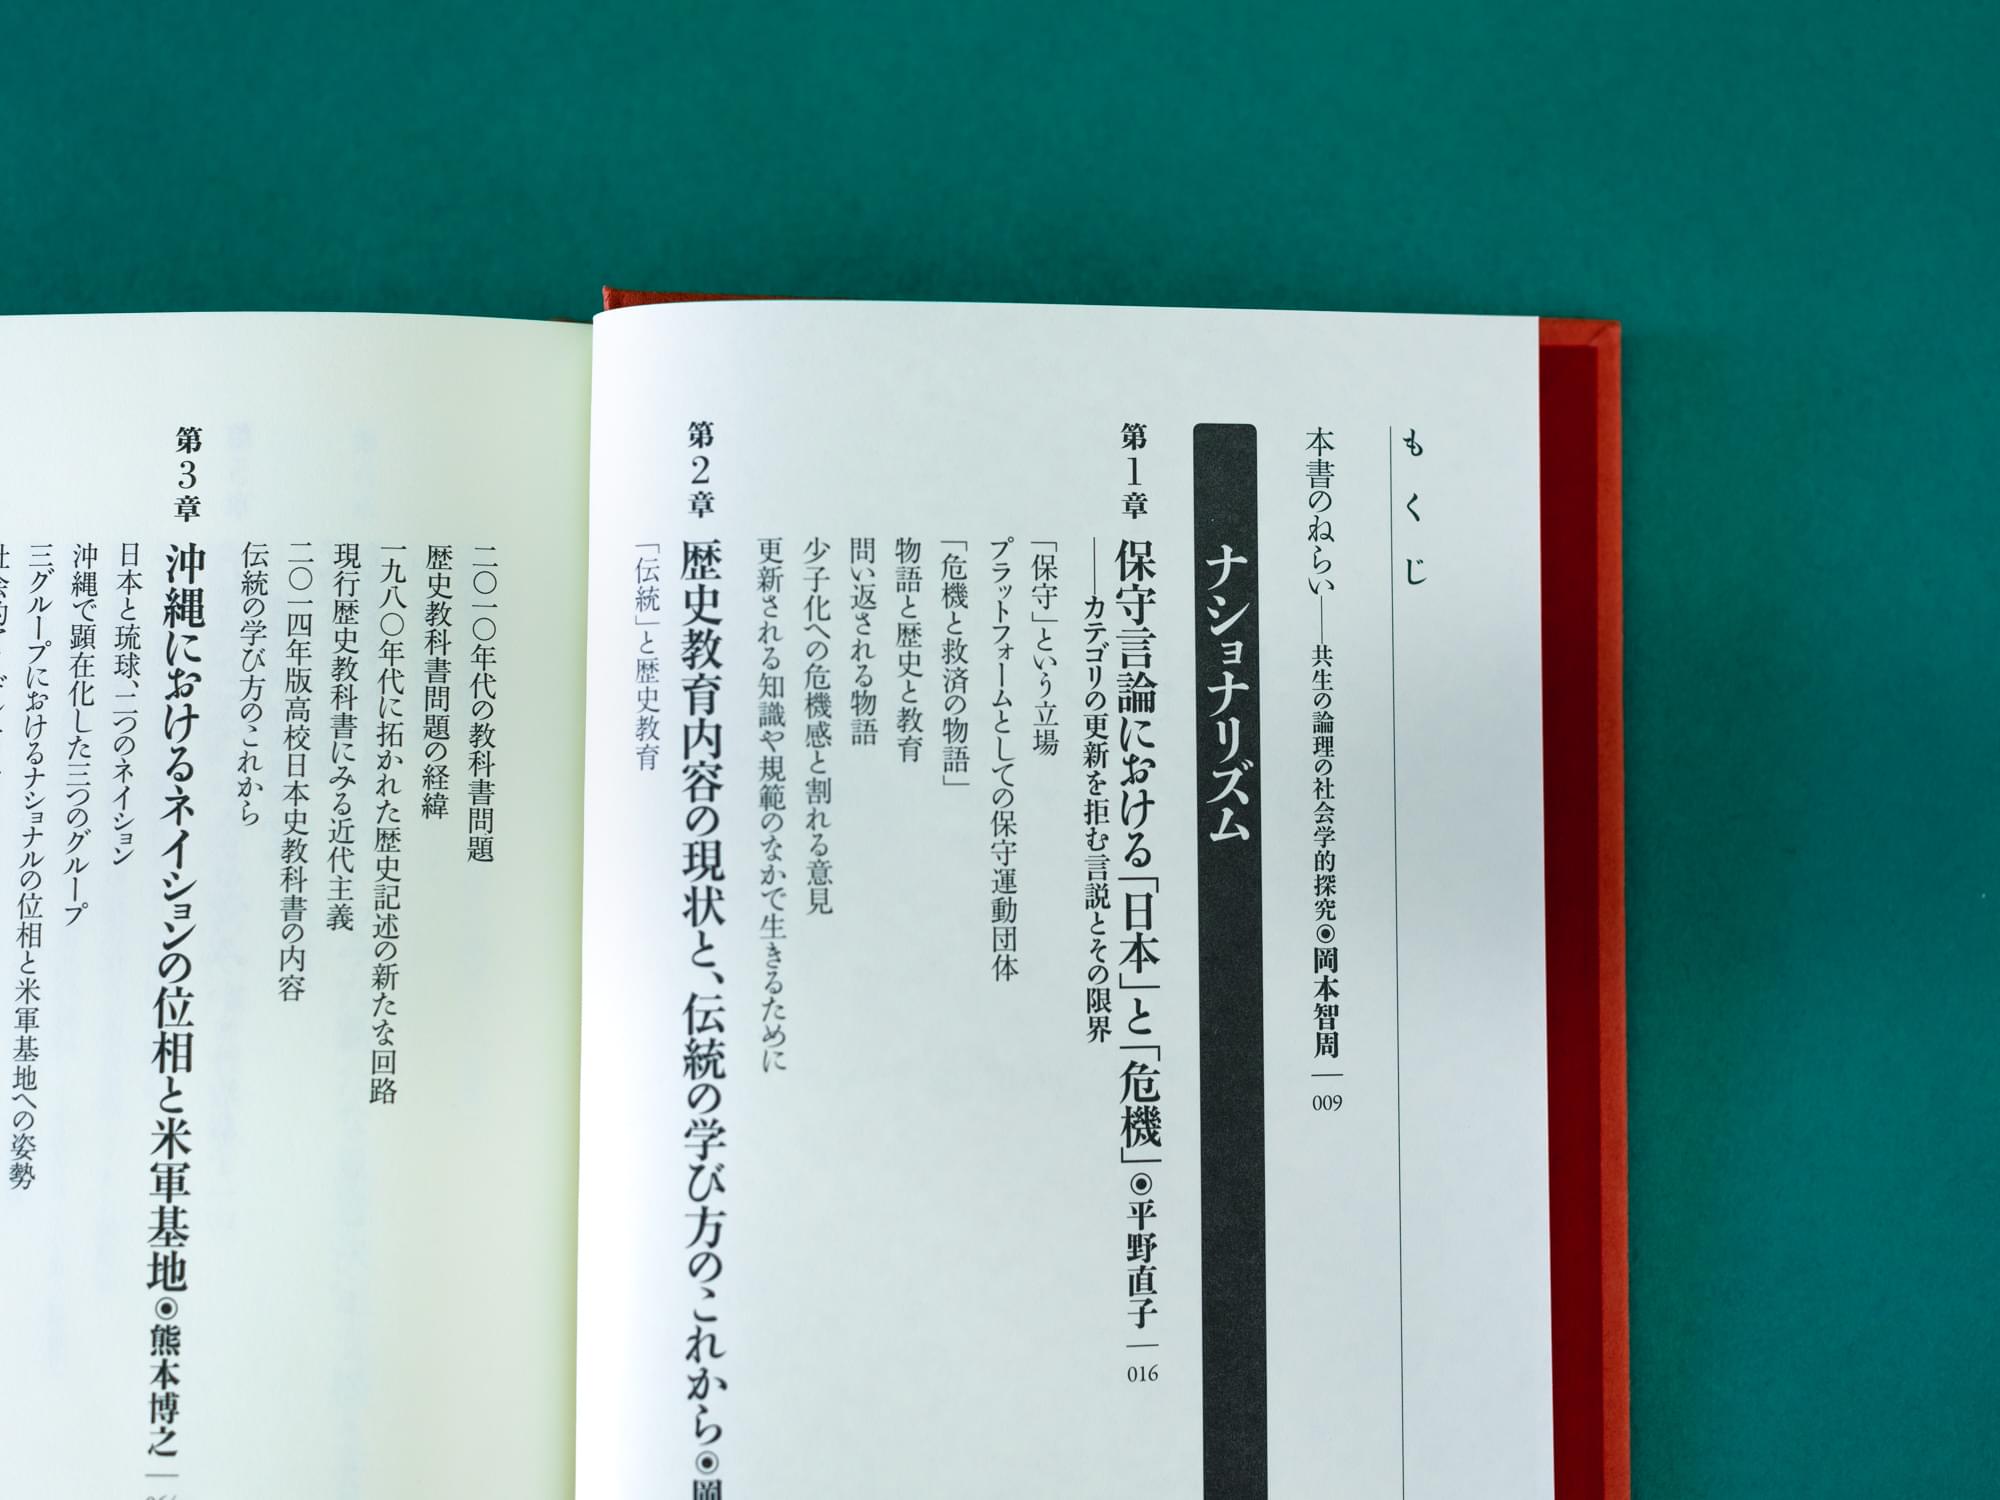 もくじ
本書のねらい――共生の論理の社会学的探究◉岡本智周 009
ナショナリズム
第1章 保守言論における「日本」と「危機」◉平野直子 016
――カテゴリの更新を拒む言説とその限界
「保守」という立場
プラットフォームとしての保守運動団体
「危機と救済の物語」
物語と歴史と教育
問い返される物語
少子化への危機感と割れる意見
更新される知識や規範のなかで生きるために
第2章 歴史教育内容の現状と、伝統の学び方のこれから◉岡
「伝統」と歴史教育
二〇一〇年代の教科書問題
歴史教科書問題の経緯
一九八〇年代に拓かれた歴史記述の新たな回路
現行歴史教科書にみる近代主義
二〇一四年版高校日本史教科書の内容
伝統の学び方のこれから
第3章 沖縄におけるネイションの位相と米軍基地◉熊本博之
日本と琉球、二つのネイション
沖縄で顕在化した三つのグループ
三グループにおけるナショナルの位相と米軍基地への姿勢